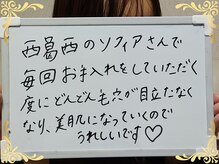 西葛西のソフィアさんで
毎回お手入れをしていただく
度にどんどん毛穴が目立たなく
なり、美肌になっていくので
うれしいです♡